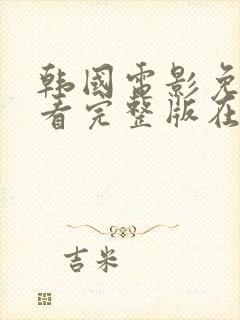 韩国电影免
看完整版在
吉米